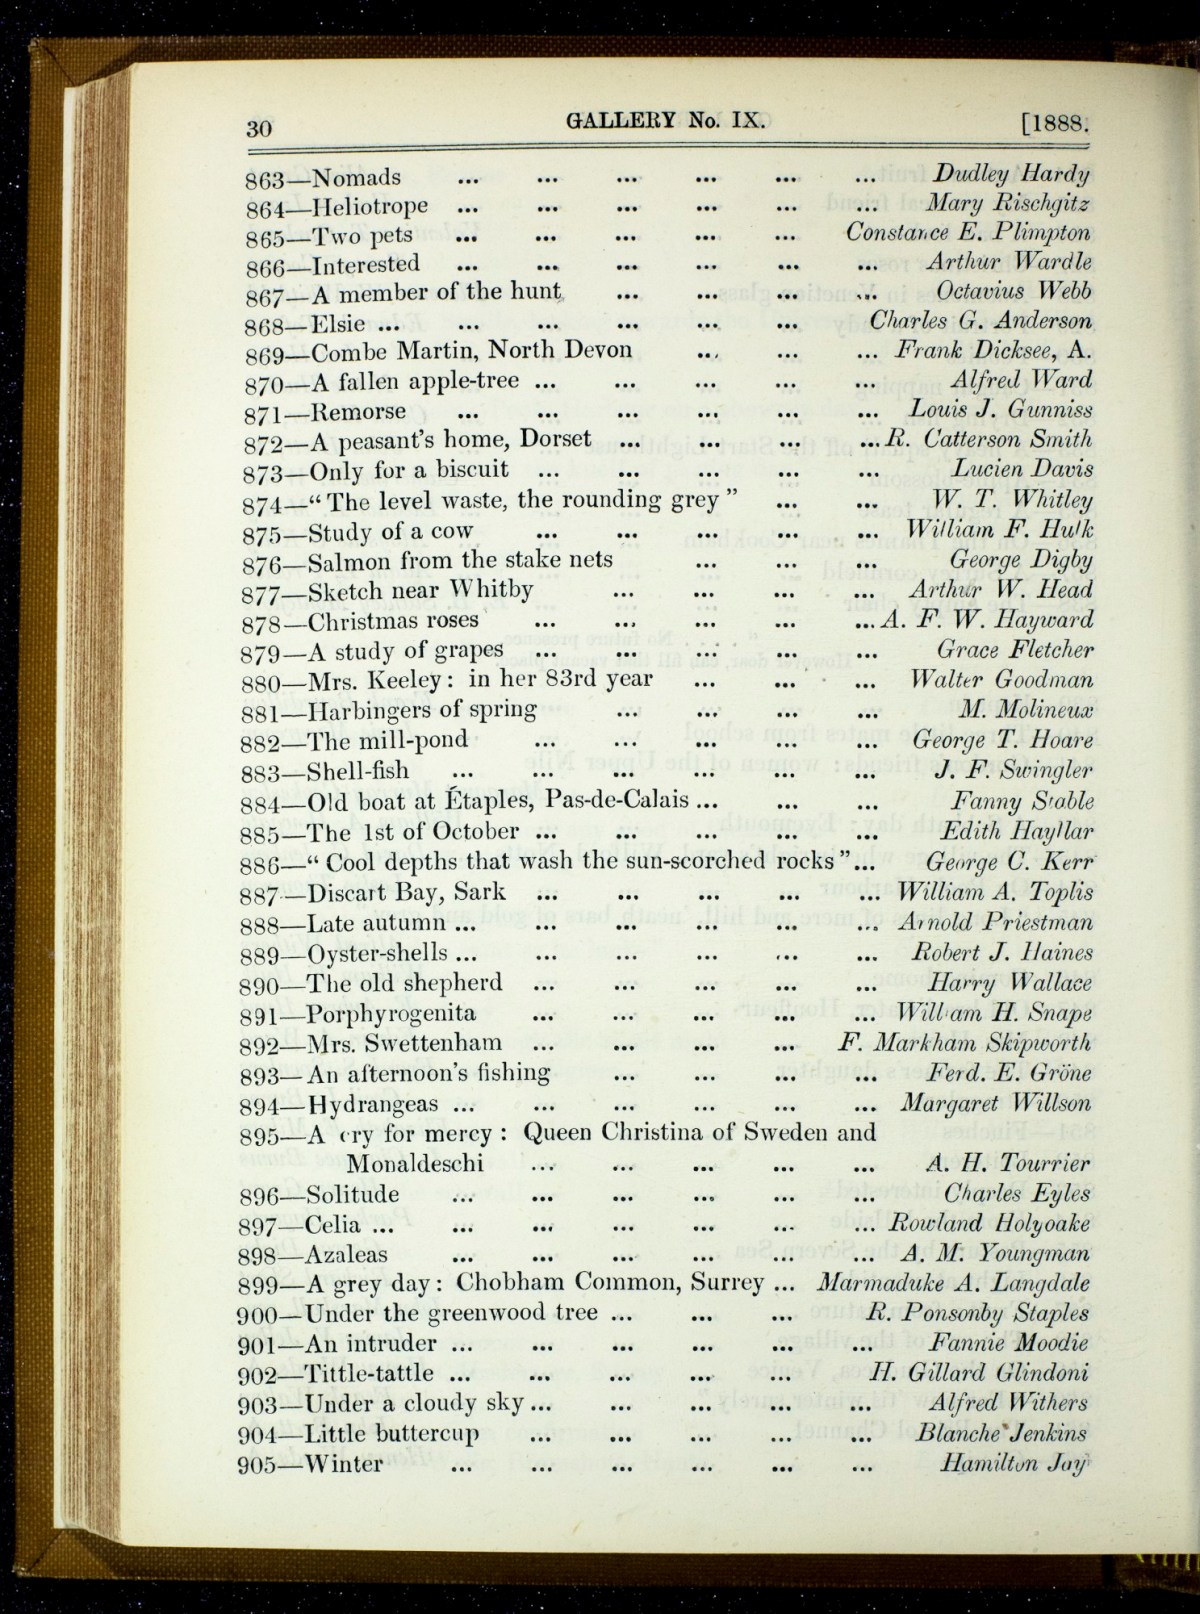 30 GALLERY No. IX. [1888.
863—Nomads ... ... ... ... ... ... Dudley Hardy
864—Heliotrope ... ... ... ... ... ... Mary Rischgitz
865—Two pets ... ... ... ... ... Constance E. Plimpton
866—Interested ... ... ... ... ... ... Arthur Wardle
867—A member of the hunt ... ... ... ... Octavius Webb
868—Elsie ... ... ... ... ... ... Charles G. Anderson
869—Combe Martin, North Devon ... ... ... Frank Dicksee, A.
870—A fallen apple-tree ... ... ... ... ... Alfred Ward
871—Remorse ... ... ... ... ... ... Louis J. Gunniss
872—A peasant's home, Dorset ... ... ... ... R. Catterson Smith
873—Only for a biscuit ... ... ... ... ... Lucien Davis
874—“ The level waste, the rounding grey ” ... ... W. T. Whitley
875—Study of a cow ... ... ... ... ... William F. Hulk
876—Salmon from the stake nets ... ... ... George Digby
877—Sketch near Whitby ... ... ... ... Arthur W. Head
878—Christmas roses ... ... ... ... ... A. F. W. Hayward
879—A study of grapes ... ... ... ... ... Grace Fletcher
880—Mrs. Keeley: in her 83rd year ... ... ... Walter Goodman
881—Harbingers of spring ... ... ... ... M. Molineux
882—The mill-pond ... ... ... ... ... George T. Hoare
883—Shell-fish ... ... ... ... ... ... J. F. Swingler
884—Old boat at Étaples, Pas-de-Calais ... ... ... Fanny Stable
885—The 1st of October ... ... ... ... ... Edith Hayllar
886—“ Cool depths that wash the sun-scorched rocks ”... George C. Kerr
887—Discart Bay, Sark ... ... ... ... ... William A. Toplis
888—Late autumn ... ... ... ... ... ... Arnold Priestman
889—Oyster-shells ... ... ... ... ... ... Robert J. Haines
890—The old shepherd ... ... ... ... ... Harry Wallace
891—Porphyrogenita ... ... ... ... ... William H. Snape
892—Mrs. Swettenham ... ... ... ... F. Markham Skipworth
893—An afternoon's fishing ... ... ... ... Ferd. E. Gröne
894—Hydrangeas ... ... ... ... ... ... Margaret Willson
895—A cry for mercy : Queen Christina of Sweden and
Monaldeschi ... ... ... ... ... A. H. Tourrier
896—Solitude ... ... ... ... ... ... Charles Eyles
897—Celia ... ... ... ... ... ... ... Rowland Holyoake
898—Azaleas ... ... ... ... ... ... A. M. Youngman
899—A grey day: Chobham Common, Surrey ... Marmaduke A. Langdale
900—Under the greenwood tree ... ... ... R. Ponsonby Staples
901—An intruder ... ... ... ... ... ... Fannie Moodie
902—Tittle-tattle ... ... ... ... ... H. Gillard Glindoni
903—Under a cloudy sky ... ... ... ... ... Alfred Withers
904—Little buttercup ... ... ... ... ... Blanche Jenkins
905—Winter ... ... ... ... ... ... Hamilton Jay